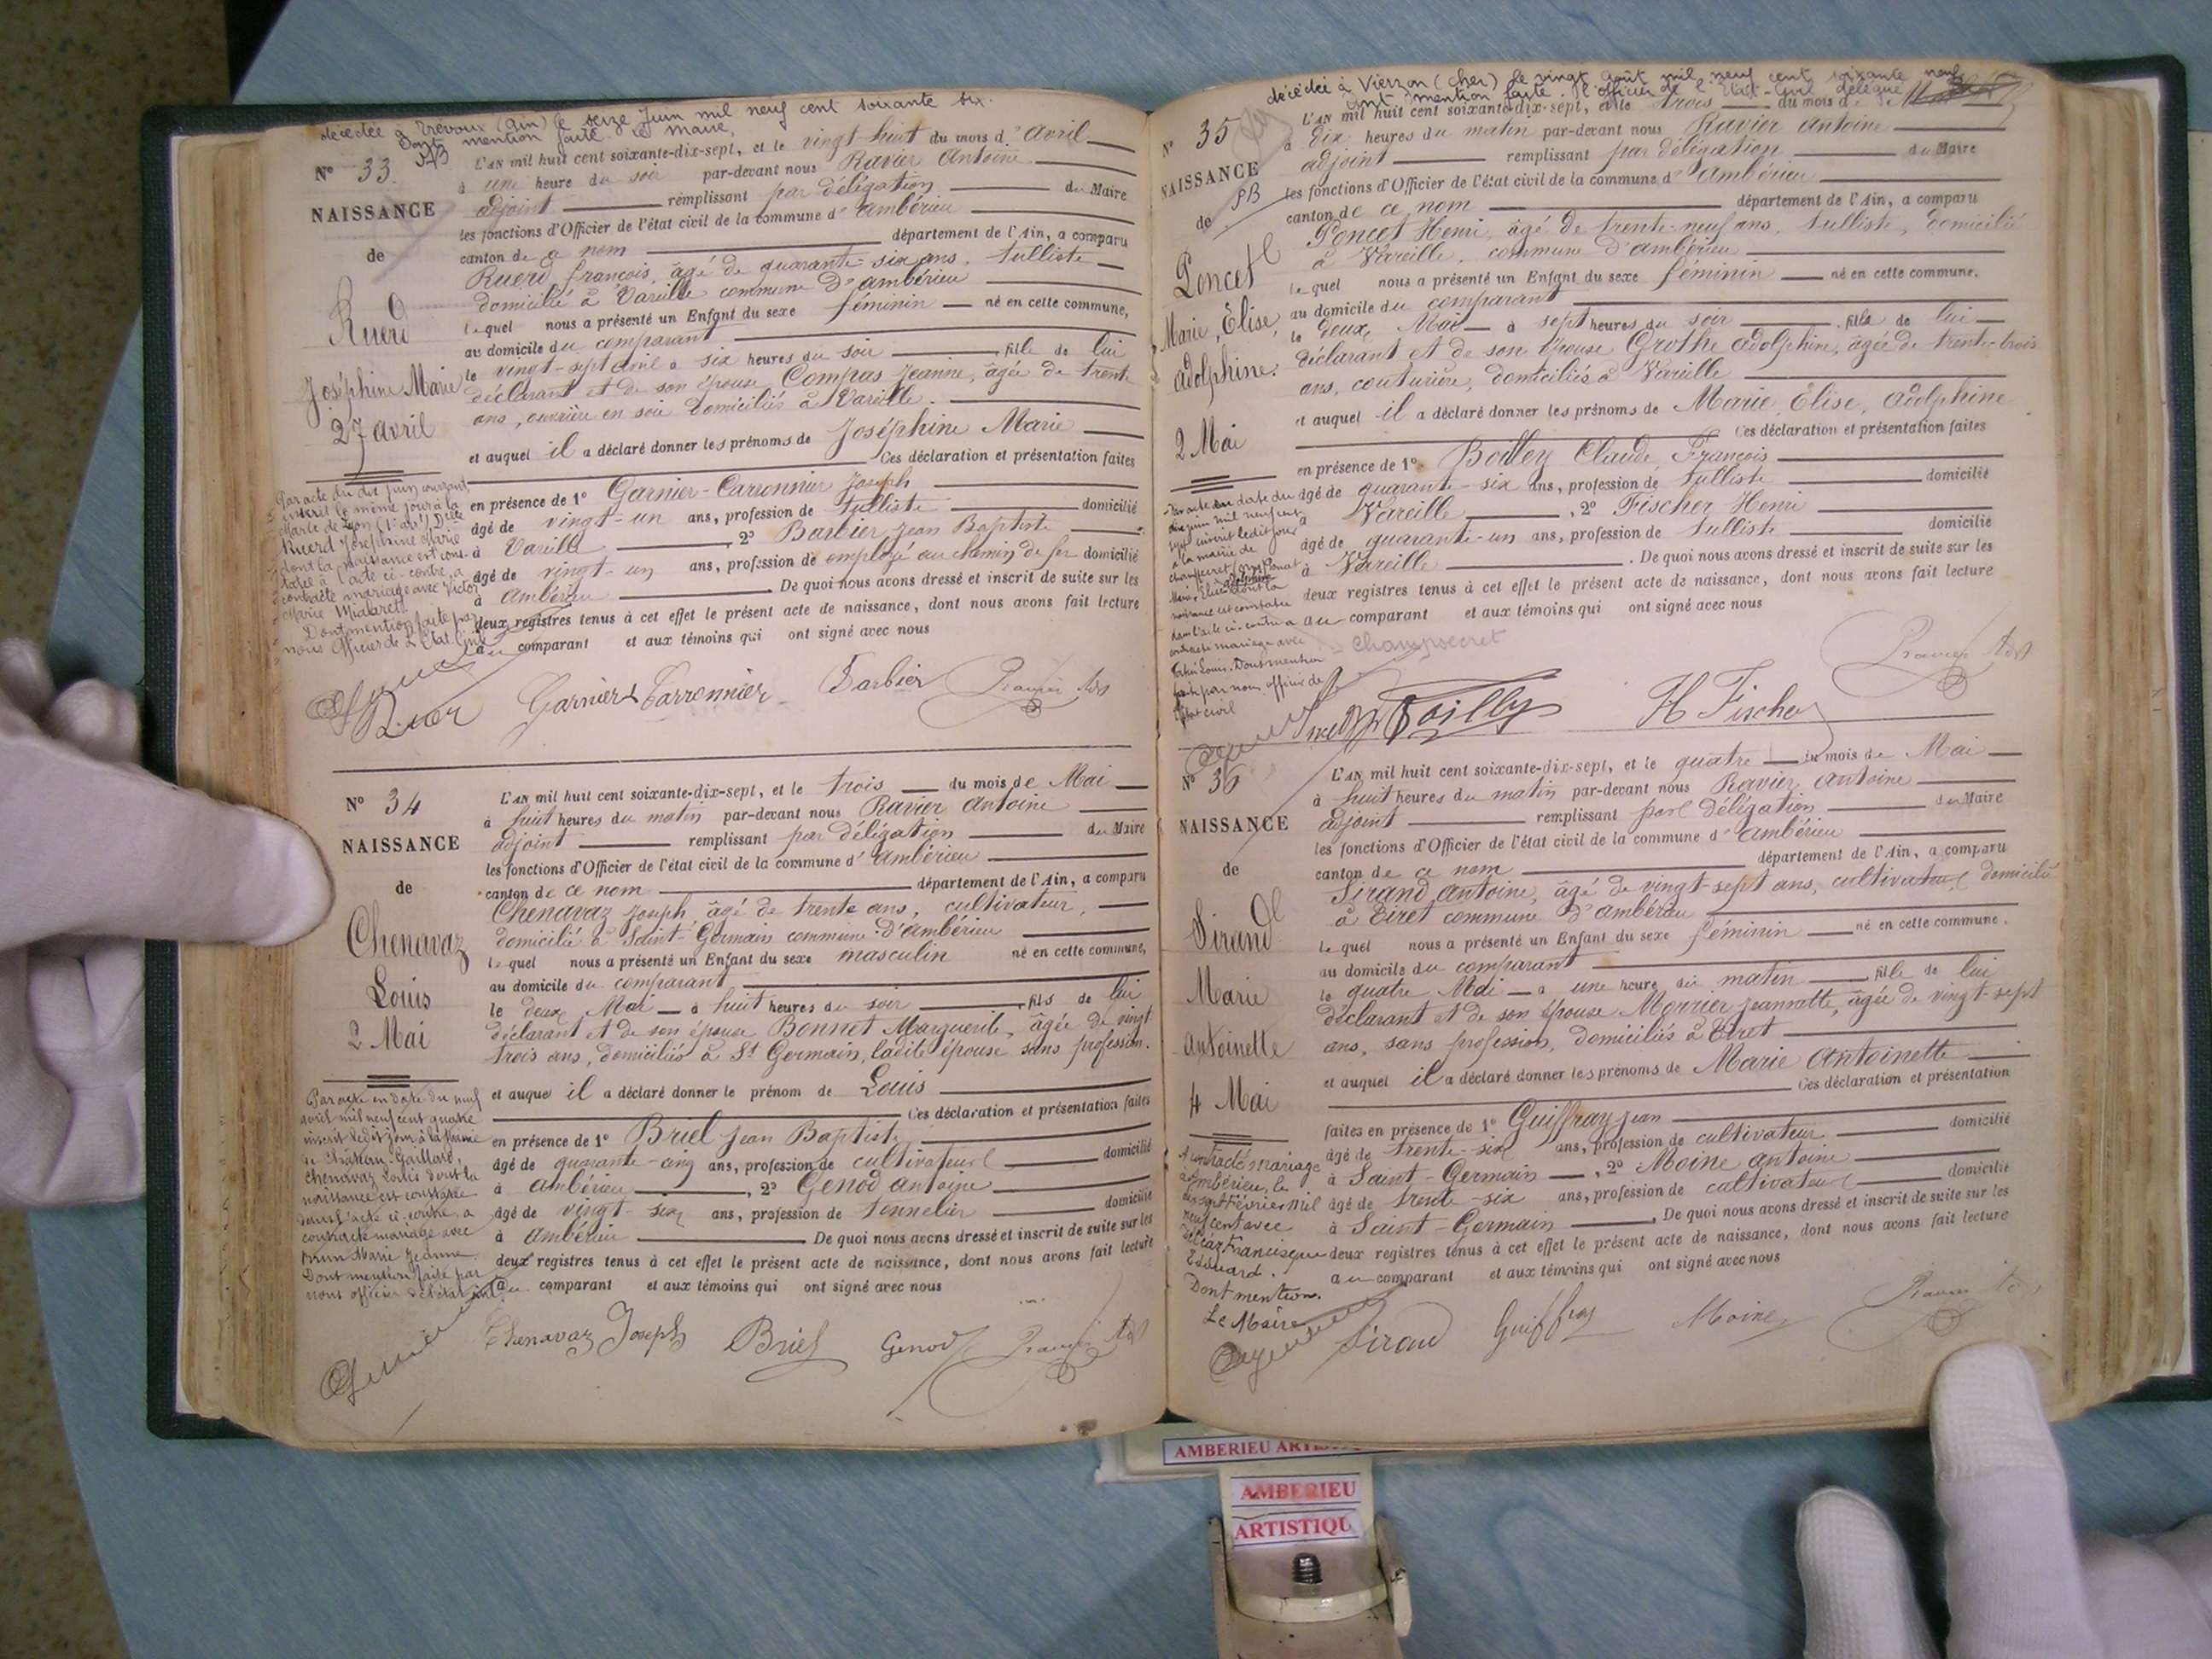 décédée à Trévoux (Ain) le seize Juin mil neuf cent soixante six.
Dont mention faite. Le Maire,
N° 33
NAISSANCE
de
Ruerd
Joséphine Marie
27 avril
L'AN mil huit cent soixante-dix-sept, et le vingt-huit du mois d'avril
à une heure du soir par-devant nous Ravier Antoine
adjoint remplissant par délégation du Maire
les fonctions d'Officier de l'état civil de la commune d'ambérieu
canton de ce nom département de l'Ain, a comparu
Ruerd françois, âgé de quarante-six ans, tulliste
domicilié à Vareille commune d'ambérieu
lequel nous a présenté un Enfant du sexe féminin né en cette commune,
au domicile du comparant
le vingt-sept avril à six heures du soir fille de lui
déclarant et de son épouse Compas Jeanne, âgée de trente
ans, ouvrière en soie domiciliés à Vareille.
et auquel il a déclaré donner les prénoms de Joséphine Marie
Ces déclaration et présentation faites
en présence de 1° Garnier-Carronnier Joseph
âgé de vingt-un ans, profession de tulliste domicilié
à Vareille, 2° Barbier Jean Baptiste
âgé de vingt-un ans, profession de employé au chemin de fer domicilié
à Ambérieu De quoi nous avons dressé et inscrit de suite sur les
deux registres tenus à cet effet le présent acte de naissance, dont nous avons fait lecture
au comparant et aux témoins qui ont signé avec nous
Par acte du dix juin courant,
inscrit le même jour à la
Mairie de Lyon (1er arrt) Dlle
Ruerd Joséphine Marie
dont la naissance est cons-
tatée à l'acte ci-contre, a
contracté mariage avec Victor
Marie
Dont mention faite par
nous Officier de l'Etat Civil
Ruer Garnier Carronnier Barbier Ravier
N° 34
NAISSANCE
de
Chenavaz
Louis
2 Mai
L'AN mil huit cent soixante-dix-sept, et le trois du mois de Mai
à huit heures du matin par-devant nous Ravier Antoine
adjoint remplissant par délégation du Maire
les fonctions d'Officier de l'état civil de la commune d'ambérieu
canton de ce nom département de l'Ain, a comparu
Chenavaz Joseph, âgé de trente ans, cultivateur,
domicilié à Saint-Germain commune d'ambérieu
lequel nous a présenté un Enfant du sexe masculin né en cette commune,
au domicile du comparant
le deux Mai à huit heures du soir, fils de lui
déclarant et de son épouse Bonnet Marguerite, âgée de vingt
trois ans, domiciliés à St Germain, ladite épouse sans profession.
et auquel il a déclaré donner le prénom de Louis
Ces déclaration et présentation faites
en présence de 1° Briel Jean Baptiste
âgé de quarante-cinq ans, profession de cultivateur domicilié
à ambérieu, 2° Genod Antoine
âgé de vingt-six ans, profession de tonnelier domicilié
à ambérieu De quoi nous avons dressé et inscrit de suite sur les
deux registres tenus à cet effet le présent acte de naissance, dont nous avons fait lecture
au comparant et aux témoins qui ont signé avec nous
Par acte en date du neuf
avril mil neuf cent quatre
inscrit ledit jour à la Mairie
de Château-Gaillard,
Chenavaz Louis dont la
naissance est constatée
dans l'acte ci-contre, a
contracté mariage avec
Marie Jeanne.
Dont mention faite par
nous officier de l'état civil
Chenavaz Joseph Briel Genod Ravier
décédée à Vierzon (Cher) le vingt Août mil neuf cent soixante neuf
Dont mention faite. l'officier de l'Etat-Civil délégué
N° 35
NAISSANCE
de
PB
Poncet
Marie, Élise,
adolphine.
2 Mai
L'AN mil huit cent soixante-dix-sept, et le trois du mois de Mai
à dix heures du matin par-devant nous Ravier Antoine
adjoint remplissant par délégation du Maire
les fonctions d'Officier de l'état civil de la commune d'Ambérieu
canton de ce nom département de l'Ain, a comparu
Poncet Henri, âgé de trente-neuf ans, tulliste, domicilié
à Vareille, commune d'ambérieu
lequel nous a présenté un Enfant du sexe féminin né en cette commune.
au domicile du comparant
le deux Mai à sept heures du soir fille de lui
déclarant et de son épouse Grothe Adolphine, âgée de trente-trois
ans, couturière, domiciliés à Vareille
et auquel il a déclaré donner les prénoms de Marie, Élise, Adolphine
Ces déclaration et présentation faites
en présence de 1° Boilley Claude François
âgé de quarante-six ans, profession de tulliste domicilié
à Vareille, 2° Fischer Henri
âgé de quarante-un ans, profession de tulliste domicilié
à Vareille. De quoi nous avons dressé et inscrit de suite sur les
deux registres tenus à cet effet le présent acte de naissance, dont nous avons fait lecture
au comparant et aux témoins qui ont signé avec nous
Par acte en date du
juin mil neuf cent
sept inscrit ledit jour
à la mairie de
Champsecret (Orne) Poncet
Marie, Elise dont la
naissance est constatée
dans l'acte ci-contre a
contracté mariage avec
Louis. Dont mention
faite par nous, officier de
l'état civil
Champsecret
Boilley H Fischer Ravier
N° 36
NAISSANCE
de
Sirand
Marie
Antoinette
4 Mai
L'AN mil huit cent soixante-dix-sept, et le quatre du mois de Mai
à huit heures du matin par-devant nous Ravier Antoine
adjoint remplissant par délégation du Maire
les fonctions d'Officier de l'état civil de la commune d'ambérieu
canton de ce nom département de l'Ain, a comparu
Sirand Antoine, âgé de vingt-sept ans, cultivateur, domicilié
à Tiret commune d'ambérieu
lequel nous a présenté un Enfant du sexe féminin né en cette commune.
au domicile du comparant
le quatre Mai à une heure du matin fille de lui
déclarant et de son épouse Morrier Jeannette, âgée de vingt-sept
ans, sans profession, domiciliés à Tiret
et auquel il a déclaré donner les prénoms de Marie Antoinette
Ces déclaration et présentation
faites en présence de 1° Guiffray Jean
âgé de trente-six ans, profession de cultivateur domicilié
à Saint-Germain, 2° Moine Antoine
âgé de trente-six ans, profession de cultivateur domicilié
à Saint-Germain. De quoi nous avons dressé et inscrit de suite sur les
deux registres tenus à cet effet le présent acte de naissance, dont nous avons fait lecture
au comparant et aux témoins qui ont signé avec nous
A contracté mariage
à Ambérieu, le
Février mil
neuf cent avec
Francisque
Edouard.
Dont mention.
Le Maire
Sirand Guiffray Moine Ravier
AMBERIEU
AMBERIEU
ARTISTIQU